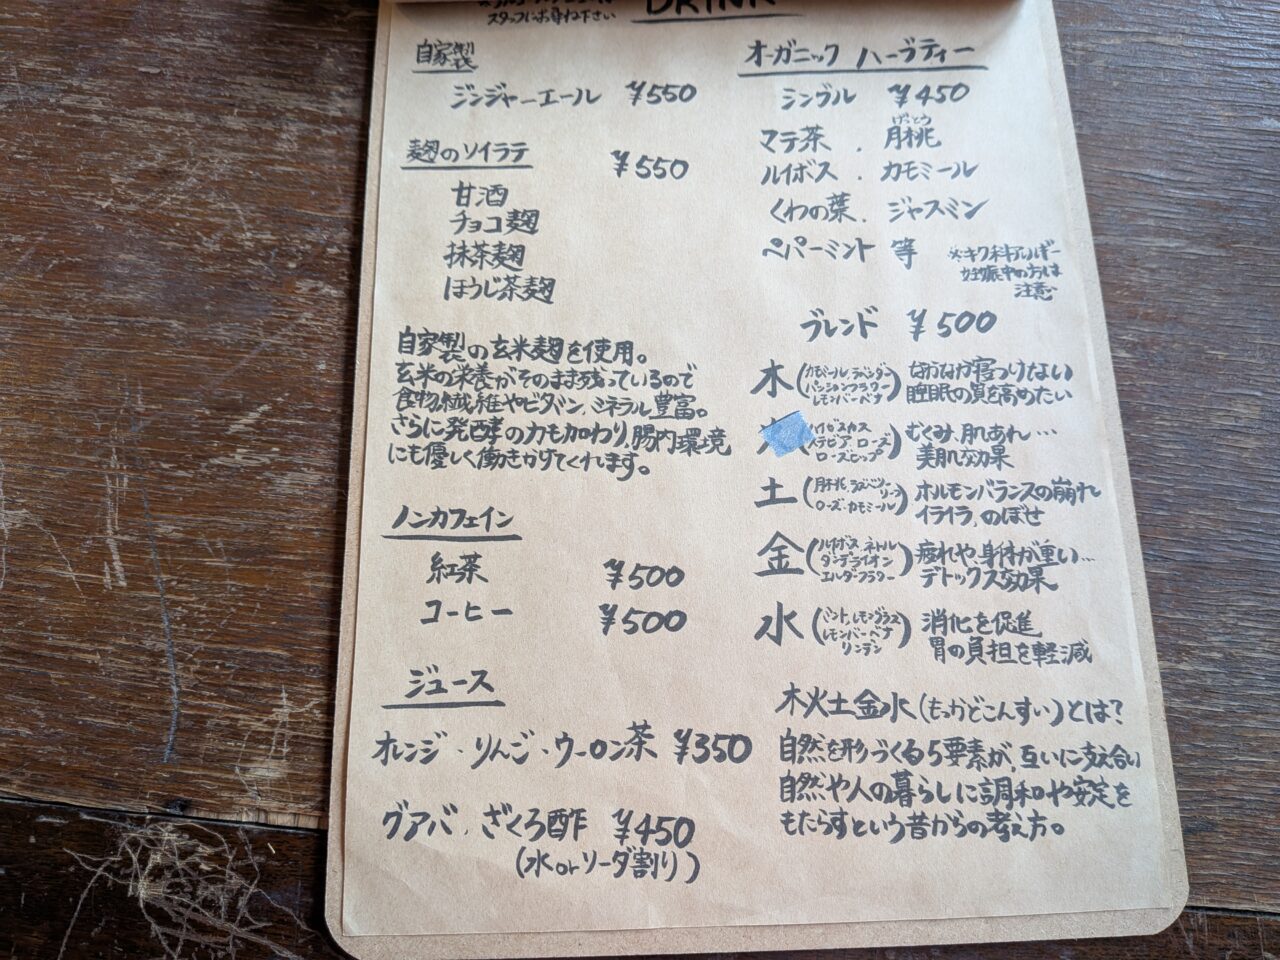 スタッフにお尋ね下さい
DRINK
自家製
ジンジャーエール ¥550
麹のソイラテ ¥550
甘酒
チョコ麹
抹茶麹
ほうじ茶麹
自家製の玄米麹を使用。
玄米の栄養がそのまま残っているので
食物繊維やビタミン、ミネラル豊富。
さらに発酵の力も加わり、腸内環境
にも優しく働きかけてくれます。
ノンカフェイン
紅茶 ¥500
コーヒー ¥500
ジュース
オレンジ・りんご・ウーロン茶 ¥350
グアバ・ざくろ酢 ¥450
(水orソーダ割り)
オーガニック ハーブティー
シングル ¥450
げっとう
マテ茶・月桃
ルイボス・カモミール
くわの葉・ジャスミン
ペパーミント 等
※キク科アレルギー
妊娠中の方は
注意
ブレンド ¥500
木(カモミール、ラベンダー
パッションフラワー
レモンバーベナ)
なかなか寝つけない
睡眠の質を高めたい
(ハイビスカス
ステビア、ローズ
ローズヒップ)
むくみ、肌あれ…
美肌効果
土(月桃、ラズベリー
リーフ
ローズ・カモミール)
ホルモンバランスの崩れ
イライラ、のぼせ
金(ルイボス、ネトル
ダンデライオン
エルダーフラワー)
疲れや、身体が重い…
デトックス効果
水(ミント、レモングラス
レモンバーベナ
リンデン)
消化を促進
胃の負担を軽減
木火土金水(もっかどこんすい)とは?
自然を形づくる5要素が、互いに支え合い
自然や人の暮らしに調和や安定を
もたらすという昔からの考え方。